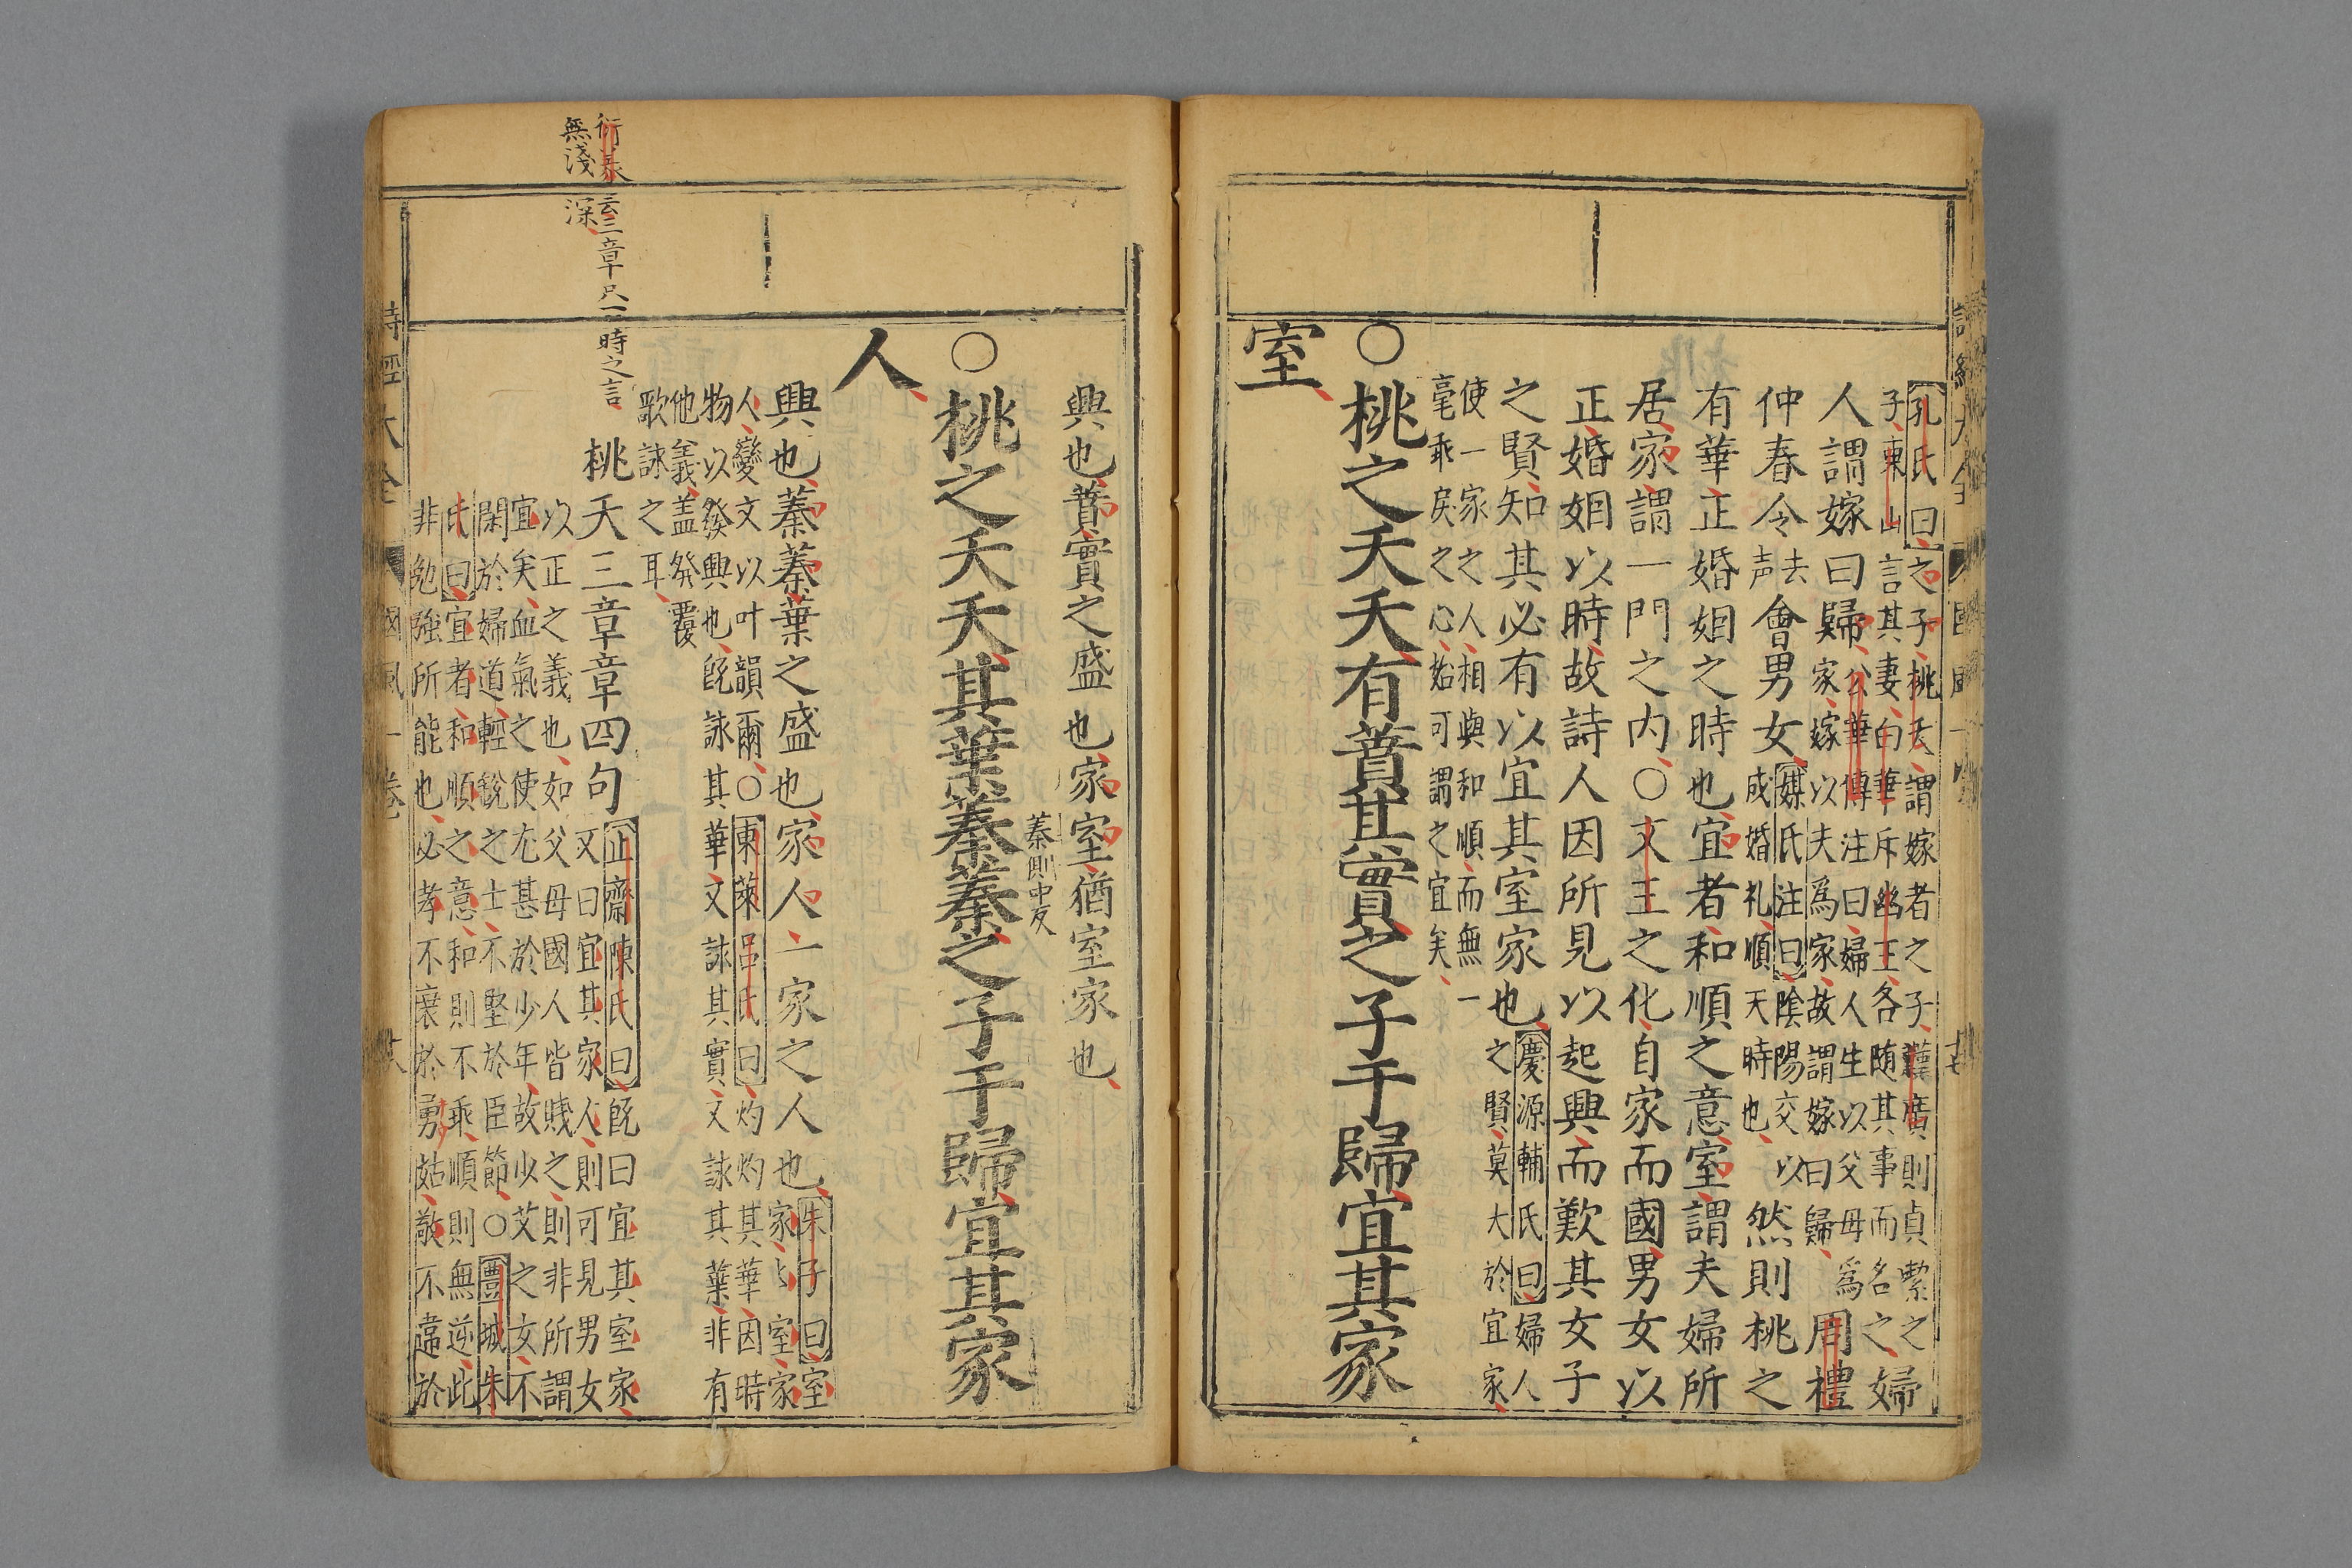 詩經大全 國風一 十七
孔氏曰之子桃夭謂嫁者之子漢廣則貞㓗之
子東山言其妻白華斥幽王各随其事而名之婦
人謂嫁曰歸公華傳注曰婦人生以父母爲
家嫁以夫爲家故謂嫁曰歸周禮
仲春令去声會男女媒氏注曰陰陽交以
成婚礼順天時也然則桃之
有華正婚姻之時也宜者和順之意室謂夫婦所
居家謂一門之内○文王之化自家而國男女以
正婚姻以時故詩人因所見以起興而歎其女子
之賢知其必有以宜其室家也慶源輔氏曰婦人
之賢莫大於宜家
使一家之人相與和順而無一
毫乖戾之心始可謂之宜矣
○桃之夭夭有蕡其實之子于歸宜其家
室
興也蕡實之盛也家室猶室家也
蓁側巾反
○桃之夭夭其葉蓁蓁之子于歸宜其家
人
興也蓁蓁葉之盛也家人一家之人也朱子曰室
家〻室家
人變文以叶韻爾○東萊呂氏曰灼灼其華因時
物以發興也旣詠其華又詠其實又詠其葉非有
他義盖發覆
歌詠之耳
衍義云三章只一時之言
無淺深
桃夭三章章四句止齋陳氏曰旣曰宜其室家
又曰宜其家人則可見男女
以正之義也如父母國人皆賤之則非所謂
宜矣血氣之使尤甚於少年故少艾之女不
閑於婦道輕銳之士不堅於臣節○豐城朱
氏曰宜者和順之意和則不乖順則無逆此
非勉強所能也必孝不衰於舅姑敬不違於
詩經大全 國風一卷 十八